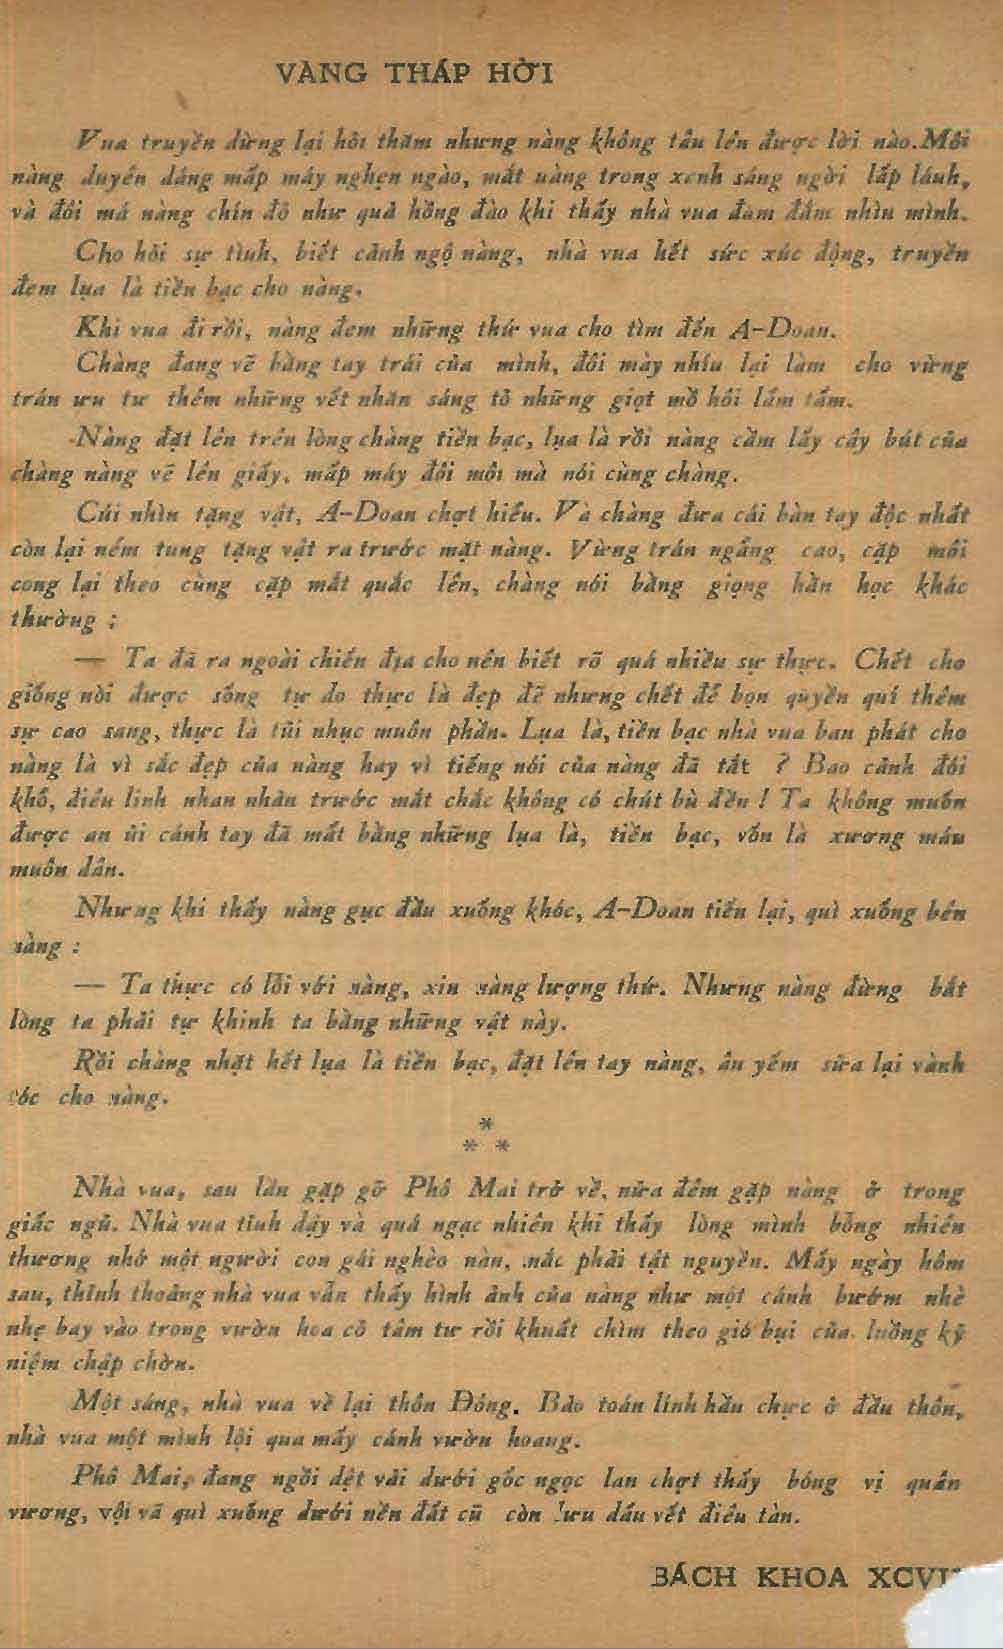 VÀNG THÁP HỜI
Vua truyền dừng lại hỏi thăm nhưng nàng không tâu lên được lời nào. Môi
nàng duyên dáng mấp máy nghẹn ngào, mắt nàng trong xanh sáng ngời lấp lánh,
và đôi má nàng chín đỏ như quả hồng đào khi thấy nhà vua đăm đắm nhìn mình.
Cho hỏi sự tình, biết cảnh ngộ nàng, nhà vua hết sức xúc động, truyền
đem lụa là tiền bạc cho nàng.
Khi vua đi rồi, nàng đem những thứ vua cho tìm đến A-Doan.
Chàng đang vẽ bằng tay trái của mình, đôi mày nhíu lại làm cho vừng
trán ưu tư thêm những vết nhăn sáng tỏ những giọt mồ hôi lấm tấm.
-Nàng đặt lên trên lòng chàng tiền bạc, lụa là rồi nàng cầm lấy cây bút của
chàng nàng vẽ lên giấy, mấp máy đôi môi mà nói cùng chàng.
Cúi nhìn tặng vật, A-Doan chợt hiểu. Và chàng đưa cái bàn tay độc nhất
còn lại ném tung tặng vật ra trước mặt nàng. Vừng trán ngẩng cao, cặp môi
cong lại theo cùng cặp mắt quắc lên, chàng nói bằng giọng hằn học khác
thường :
— Ta đã ra ngoài chiến địa cho nên biết rõ quá nhiều sự thực. Chết cho
giống nòi được sống tự do thực là đẹp đẽ nhưng chết để bọn quyền quí thêm
sự cao sang, thực là tủi nhục muôn phần. Lụa là, tiền bạc nhà vua ban phát cho
nàng là vì sắc đẹp của nàng hay vì tiếng nói của nàng đã tắt ? Bao cảnh đói
khổ, điêu linh nhan nhản trước mắt chắc không có chút bù đền ! Ta không muốn
được an ủi cánh tay đã mất bằng những lụa là, tiền bạc, vốn là xương máu
muôn dân.
Nhưng khi thấy nàng gục đầu xuống khóc, A-Doan tiến lại, quì xuống bên
nàng :
— Ta thực có lỗi với nàng, xin nàng lượng thứ. Nhưng nàng đừng bắt
lòng ta phải tự khinh ta bằng những vật này.
Rồi chàng nhặt hết lụa là tiền bạc, đặt lên tay nàng, âu yếm sửa lại vành
tóc cho nàng.
*
* *
Nhà vua, sau lần gặp gỡ Phô Mai trở về, nửa đêm gặp nàng ở trong
giấc ngủ. Nhà vua tỉnh dậy và quá ngạc nhiên khi thấy lòng mình bỗng nhiên
thương nhớ một người con gái nghèo nàn, mắc phải tật nguyền. Mấy ngày hôm
sau, thỉnh thoảng nhà vua vẫn thấy hình ảnh của nàng như một cánh bướm nhè
nhẹ bay vào trong vườn hoa cỏ tâm tư rồi khuất chìm theo gió bụi của luồng kỷ
niệm chập chờn.
Một sáng, nhà vua về lại thôn Đông. Bảo toán lính hầu chực ở đầu thôn,
nhà vua một mình lội qua mấy cánh vườn hoang.
Phô Mai, đang ngồi dệt vải dưới gốc ngọc lan chợt thấy bóng vị quân
vương, vội vã quì xuống dưới nền đất cũ còn lưu dấu vết điêu tàn.
BÁCH KHOA